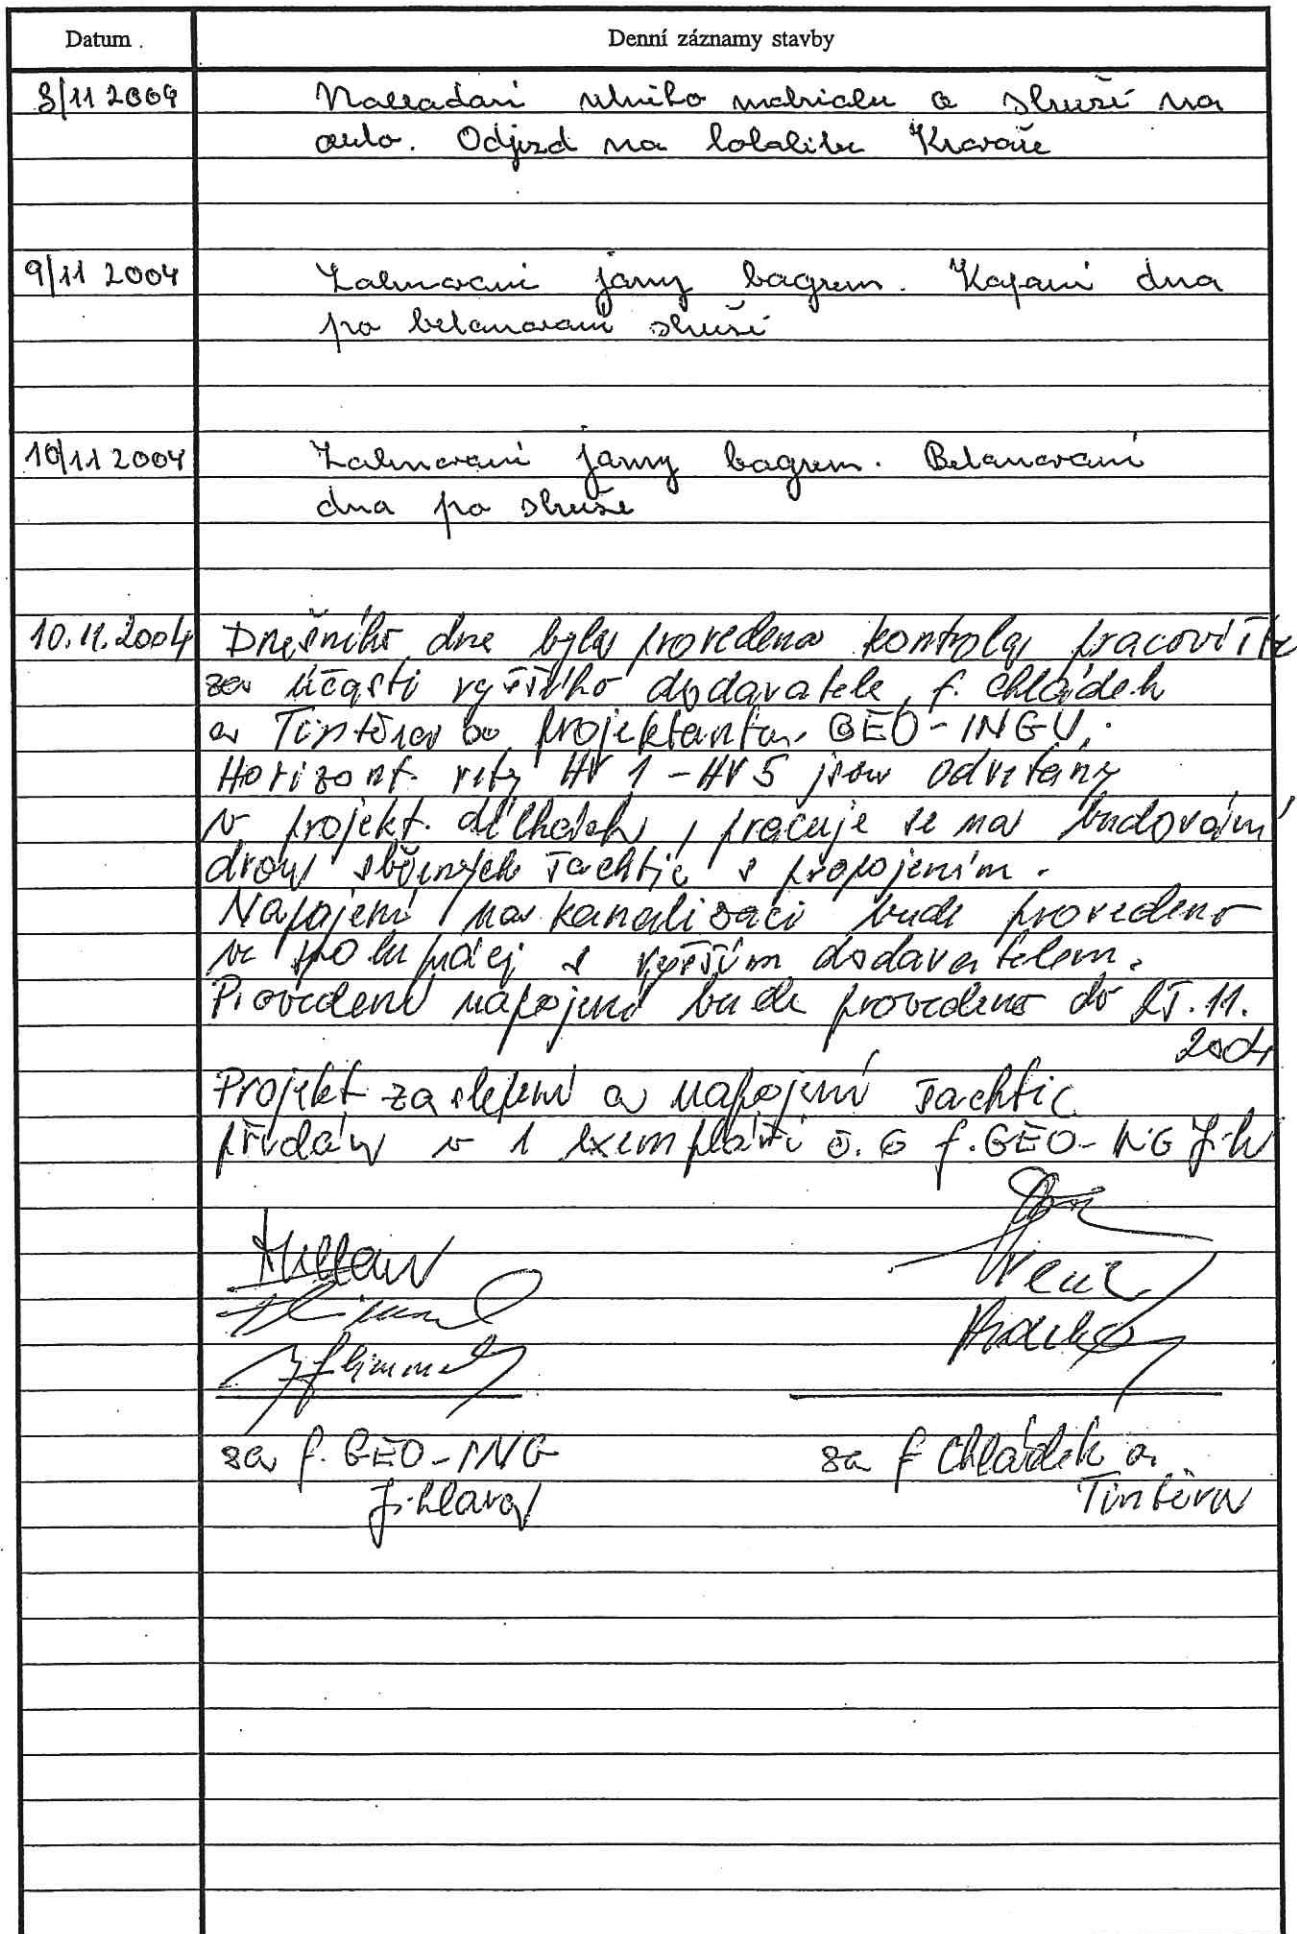 Datum
Denní záznamy stavby
8/11 2004
Nakládání materialu a skruží na
auto. Odjezd na lokalitu Kravaře
9/11 2004
jámy bagrem. Kopání dna
po betonování skruží
10/11 2004
jámy bagrem. Betonování
dna po skruže
10.11.2004
Dnešního dne byla provedena kontrola pracoviště
za účasti vyššího dodavatele, f. Chládek
a Tintěra projektanta GEO-INGU.
Horizont. vrty HV 1 - HV 5 jsou odvrtány
v projekt. délkách, pracuje se na budování
dvou sběrných šachtic s propojením.
Napojení na kanalizaci bude provedeno
ve spolupráci s vyšším dodavatelem.
Provedení napojení bude provedeno do 25.11.
2004
Projekt zaslepení a napojení šachtic
předán v 1 exempláři f. GEO-ING Jih
za f. GEO-ING
Jihlava
za f Chládek a
Tintěra